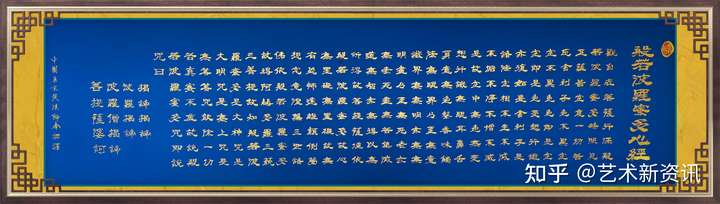 般若波羅蜜多心經
觀自在菩薩行深般
若波羅蜜多時照見
五蘊皆空度一切苦
厄舍利子色不異空
空不異色色即是空
空即是色受想行識
亦復如是舍利子是
諸法空相不生不滅
不垢不淨不增不減
是故空中無色無受
想行識無眼耳鼻舌
身意無色聲香味觸
法無眼界乃至無意
識界無無明亦無無
明盡乃至無老死亦
無老死盡無苦集滅
道無智亦無得以無
所得故菩提薩埵依
般若波羅蜜多故心
無罣礙無罣礙故無
有恐怖遠離顛倒夢
想究竟涅槃三世諸
佛依般若波羅蜜多
故得阿耨多羅三藐
三菩提故知般若波
羅蜜多是大神咒是
大明咒是無上咒是
無等等咒能除一切
苦真實不虛故說般
若波羅蜜多咒即說
咒曰
揭諦揭諦
波羅揭諦
波羅僧揭諦
菩提薩婆訶
知乎 @艺术新资讯